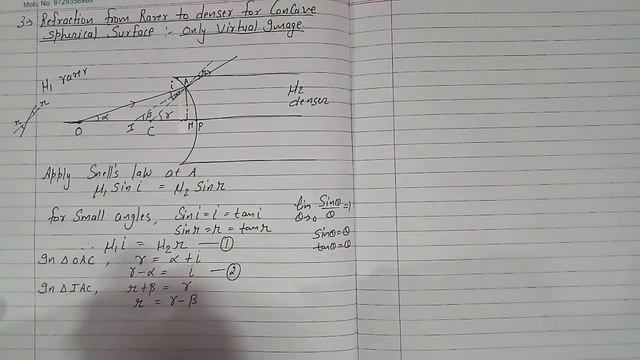 Mob. No 9729358989
3→ Refraction from Rarer to denser for Concave
spherical Surface :- Only Virtual Image
μ1 rarer
μ2
denser
A
i
r
r
α
β
γ
O
I
C
M
P
Apply Snell's law at A
μ1 Sin i = μ2 Sin r
for Small angles, Sin i = i = tan i
Sin r = r = tan r
lim θ→0 Sinθ/θ = 1
Sinθ = θ
tanθ = θ
∴ μ1 i = μ2 r —①
In △OAC, γ = α + i
γ - α = i —②
In △IAC, r + β = γ
r = γ - β